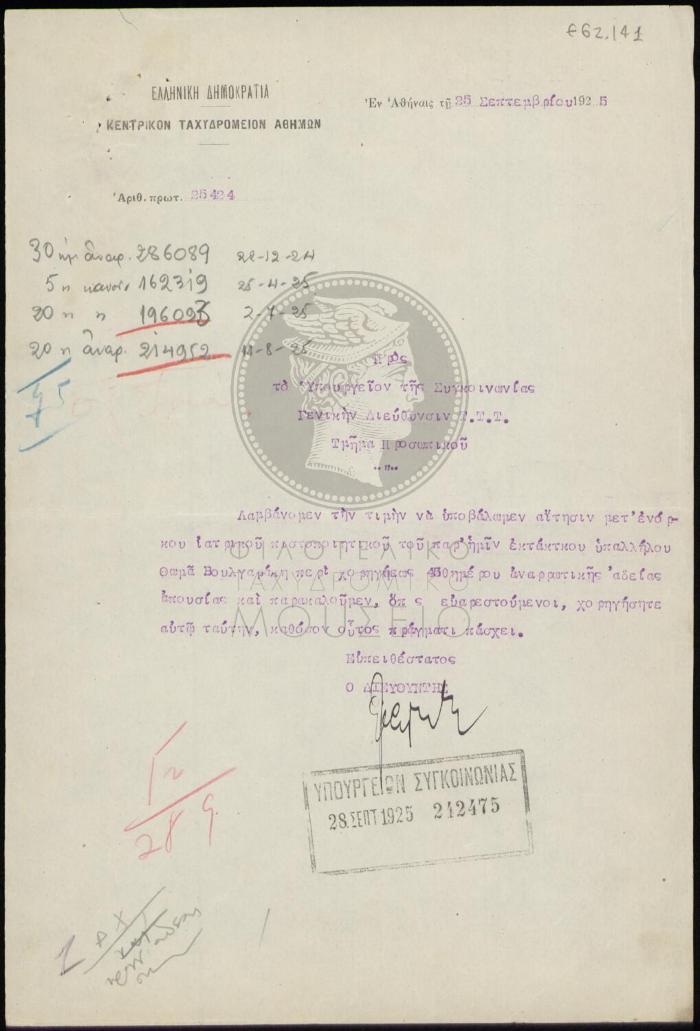 Θ62.141
ΕΛΛΗΝΙΚΗ ΔΗΜΟΚΡΑΤΙΑ
ΚΕΝΤΡΙΚΟΝ ΤΑΧΥΔΡΟΜΕΙΟΝ ΑΘΗΜΩΝ
Ἐν Ἀθήναις τῇ 25 Σεπτεμβρίου 1925
Ἀριθ. πρωτ. 25424
30 ἀναρ. 286089 22-12-24
5 η κανον. 162319 25-4-25
20 η η 196023 2-7-25
20 η ἀναρ. 214952 11-8-25
75
Πρὸς
τὸ Ὑπουργεῖον τῆς Συγκοινωνίας
Γενικὴν Διεύθυνσιν Τ.Τ.Τ.
Τμῆμα Προσωπικοῦ
Λαμβάνομεν τὴν τιμὴν νὰ ὑποβάλωμεν αἴτησιν μετ' ἐνόρ-
κου ἰατρικοῦ πιστοποιητικοῦ τοῦ παρ' ἡμῖν ἐκτάκτου ὑπαλλήλου
Θωμᾶ Βουλγαρίκη περὶ χορηγήσεως ἀναρρωτικῆς ἀδείας
ἀπουσίας καὶ παρακαλοῦμεν, ὅπ ς εὐαρεστούμενοι, χορηγήσητε
αὐτῷ ταύτην, καθόσον οὗτος πράγματι πάσχει.
Εὐπειθέστατος
Ο ΔΙΕΥΘΥΝΤΗΣ
ΦΙΛΟΤΕΛΙΚΟ
ΤΑΧΥΔΡΟΜΙΚΟ
ΜΟΥΣΕΙΟ
ΥΠΟΥΡΓΕΙΟΝ ΣΥΓΚΟΙΝΩΝΙΑΣ
28. ΣΕΠΤ 1925 242475
28 9